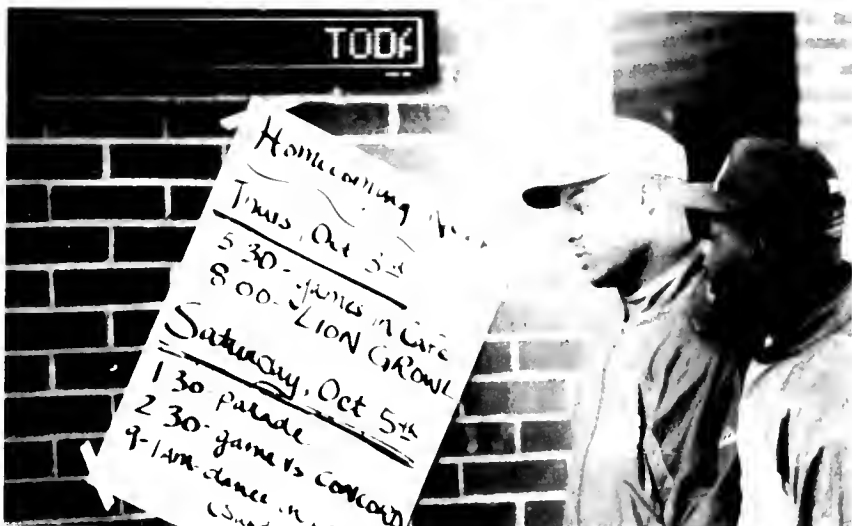 TODA
Homecoming
Thurs, Oct 3rd
5:30-games in Cafe
8:00-LION GROWL
Saturday, Oct 5th
1 30-parade
2 30-game vs CONCORD
9-1am-dance in